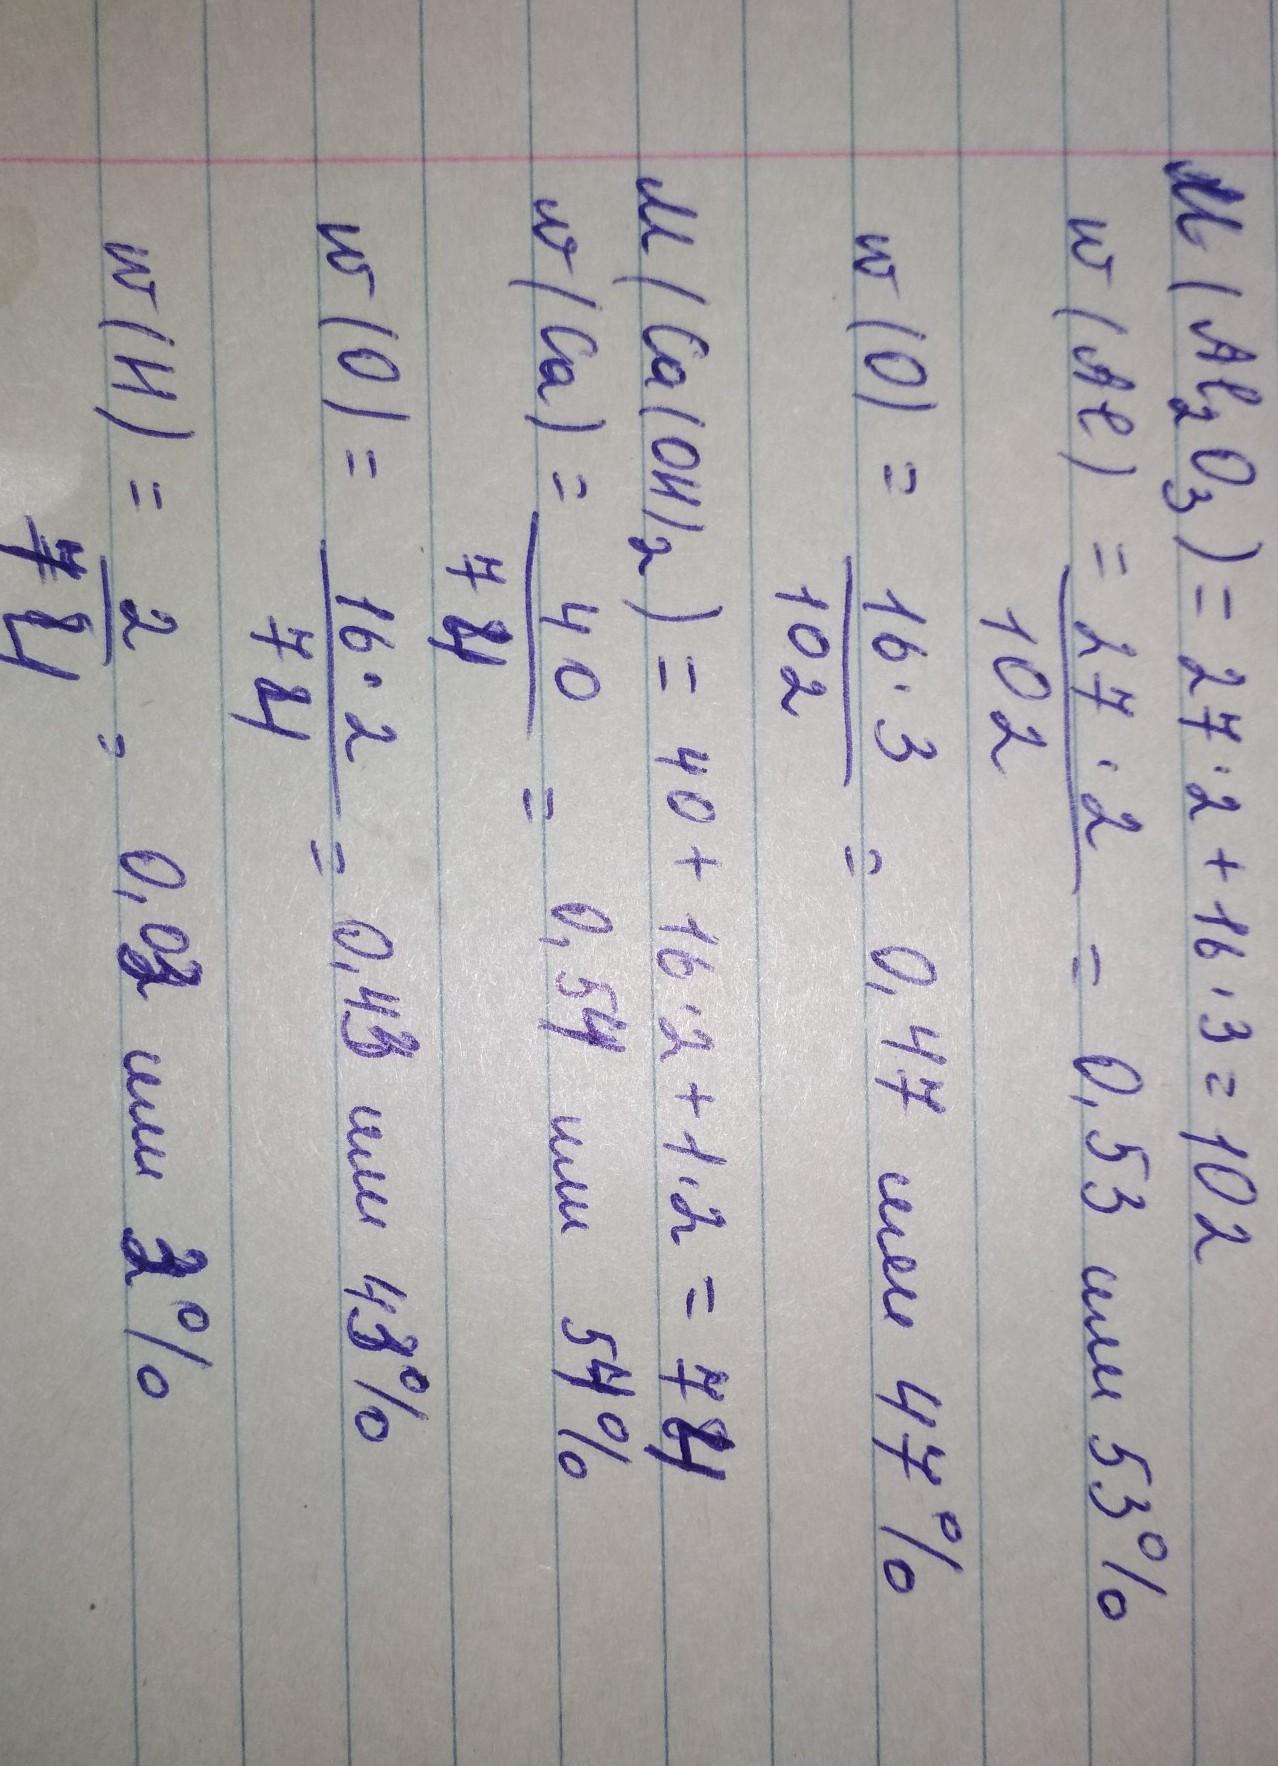 M(Al₂O₃) = 27·2 + 16·3 = 102
w(Al) = 27·2 / 102 = 0,53 или 53%
w(O) = 16·3 / 102 = 0,47 или 47%
M(Ca(OH)₂) = 40 + 16·2 + 1·2 = 74
w(Ca) = 40 / 74 = 0,54 или 54%
w(O) = 16·2 / 74 = 0,43 или 43%
w(H) = 2 / 74 = 0,03 или 3%